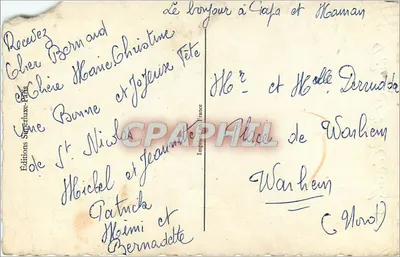 Le bonjour à Papa et Maman
Recevez
Cher Bernard
et Chère Marie Christine
une Bonne et Joyeux Fête
de St Nicolas
Michel et Jeannette
Patrick
Mimi et
Bernadette
Éditions Superluxe Paris
CPAPHIL
Mr et Melle
Place de Warhem
Warhem
(Nord)